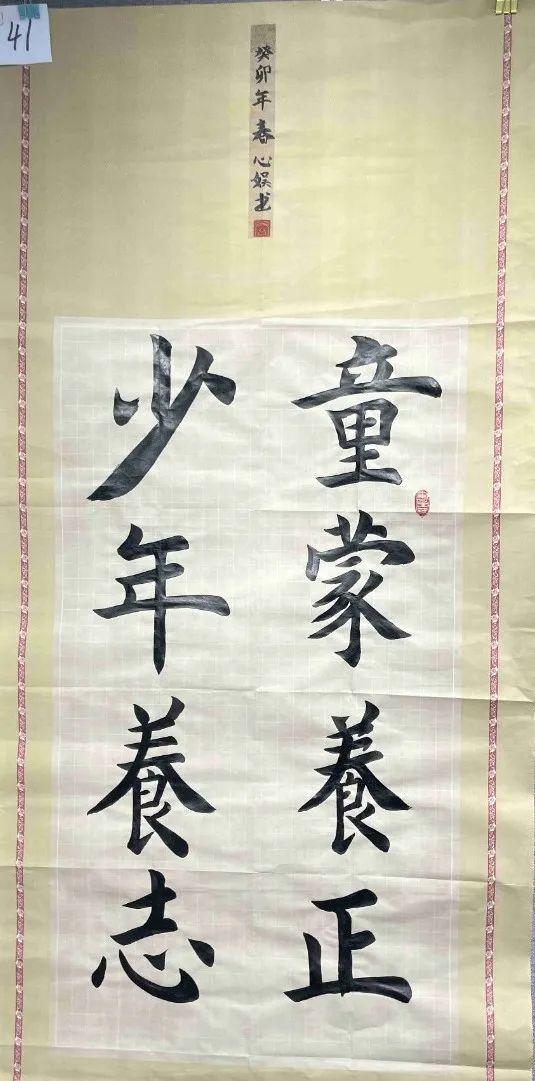 童蒙養正
少年養志
癸卯年春心娱书
41